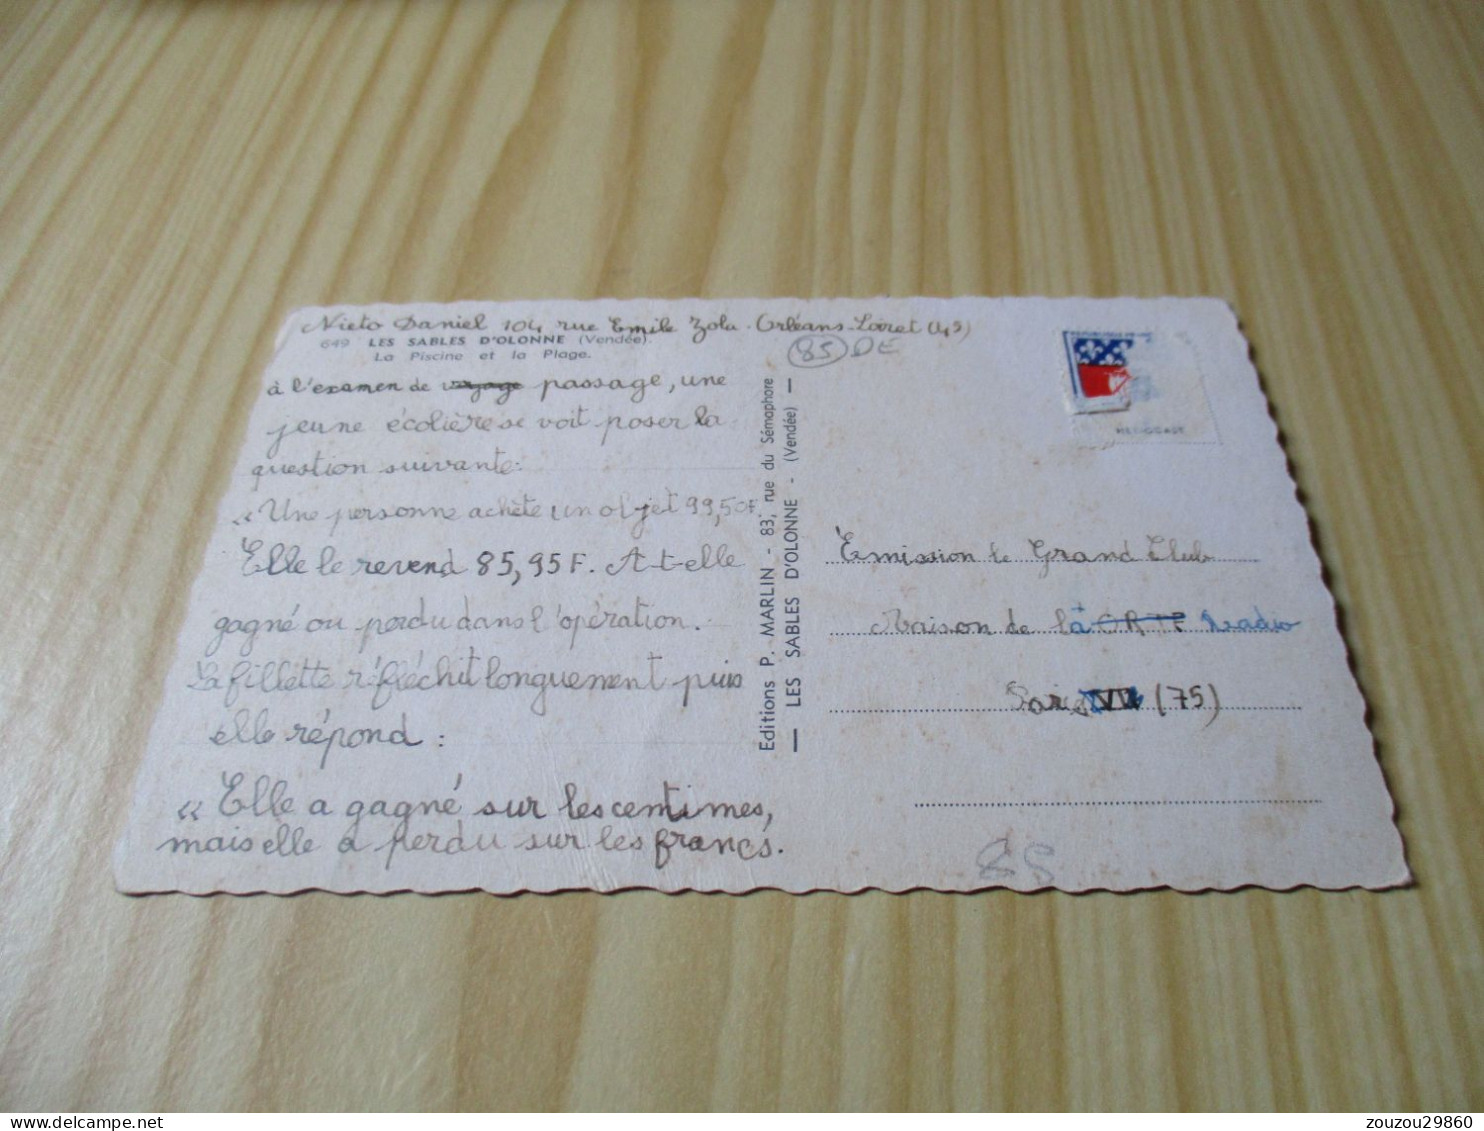 Nieto Daniel 104 rue Emile Zola - Orléans-Loiret (45)
649 LES SABLES D'OLONNE (Vendée).
La Piscine et la Plage.
à l'examen de voyage passage, une
jeune écolière se voit poser la
question suivante:
« Une personne achète un objet 99,50F.
Elle le revend 85,95F. A-t-elle
gagné ou perdu dans l'opération.
La fillette réfléchit longuement puis
elle répond :
« Elle a gagné sur les centimes,
mais elle a perdu sur les francs.
Editions P. MARLIN - 83, rue du Sémaphore
— LES SABLES D'OLONNE - (Vendée) —
85 DE
Emission le Grand Club
Maison de la ORTF Radio
Paris XVI (75)
85
zouzou29860
delcampe.net